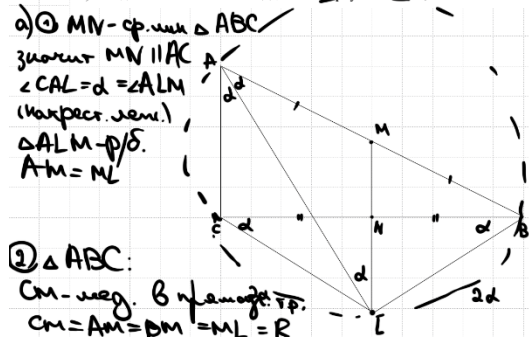 а) ① MN - ср. лин △ ABC
значит MN || AC
∠CAL = α = ∠ALM
(накрест. леж.)
△ALM - р/б.
AM = ML
② △ ABC:
CM - мед. в прямоуг. тр.
CM = AM = BM = ML = R
A
α
α
M
C
α
N
α
B
α
2α
L